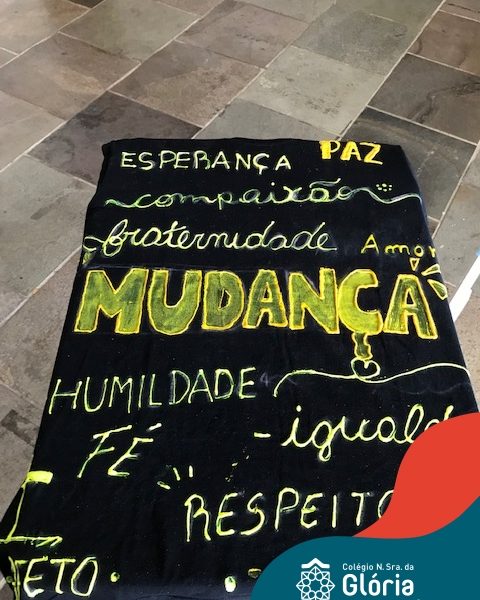 ESPERANÇA PAZ
compaixão
fraternidade Amor
MUDANÇA
HUMILDADE
FÉ - iguald
RESPEITO
ETO
Colégio N. Sra. da
Glória